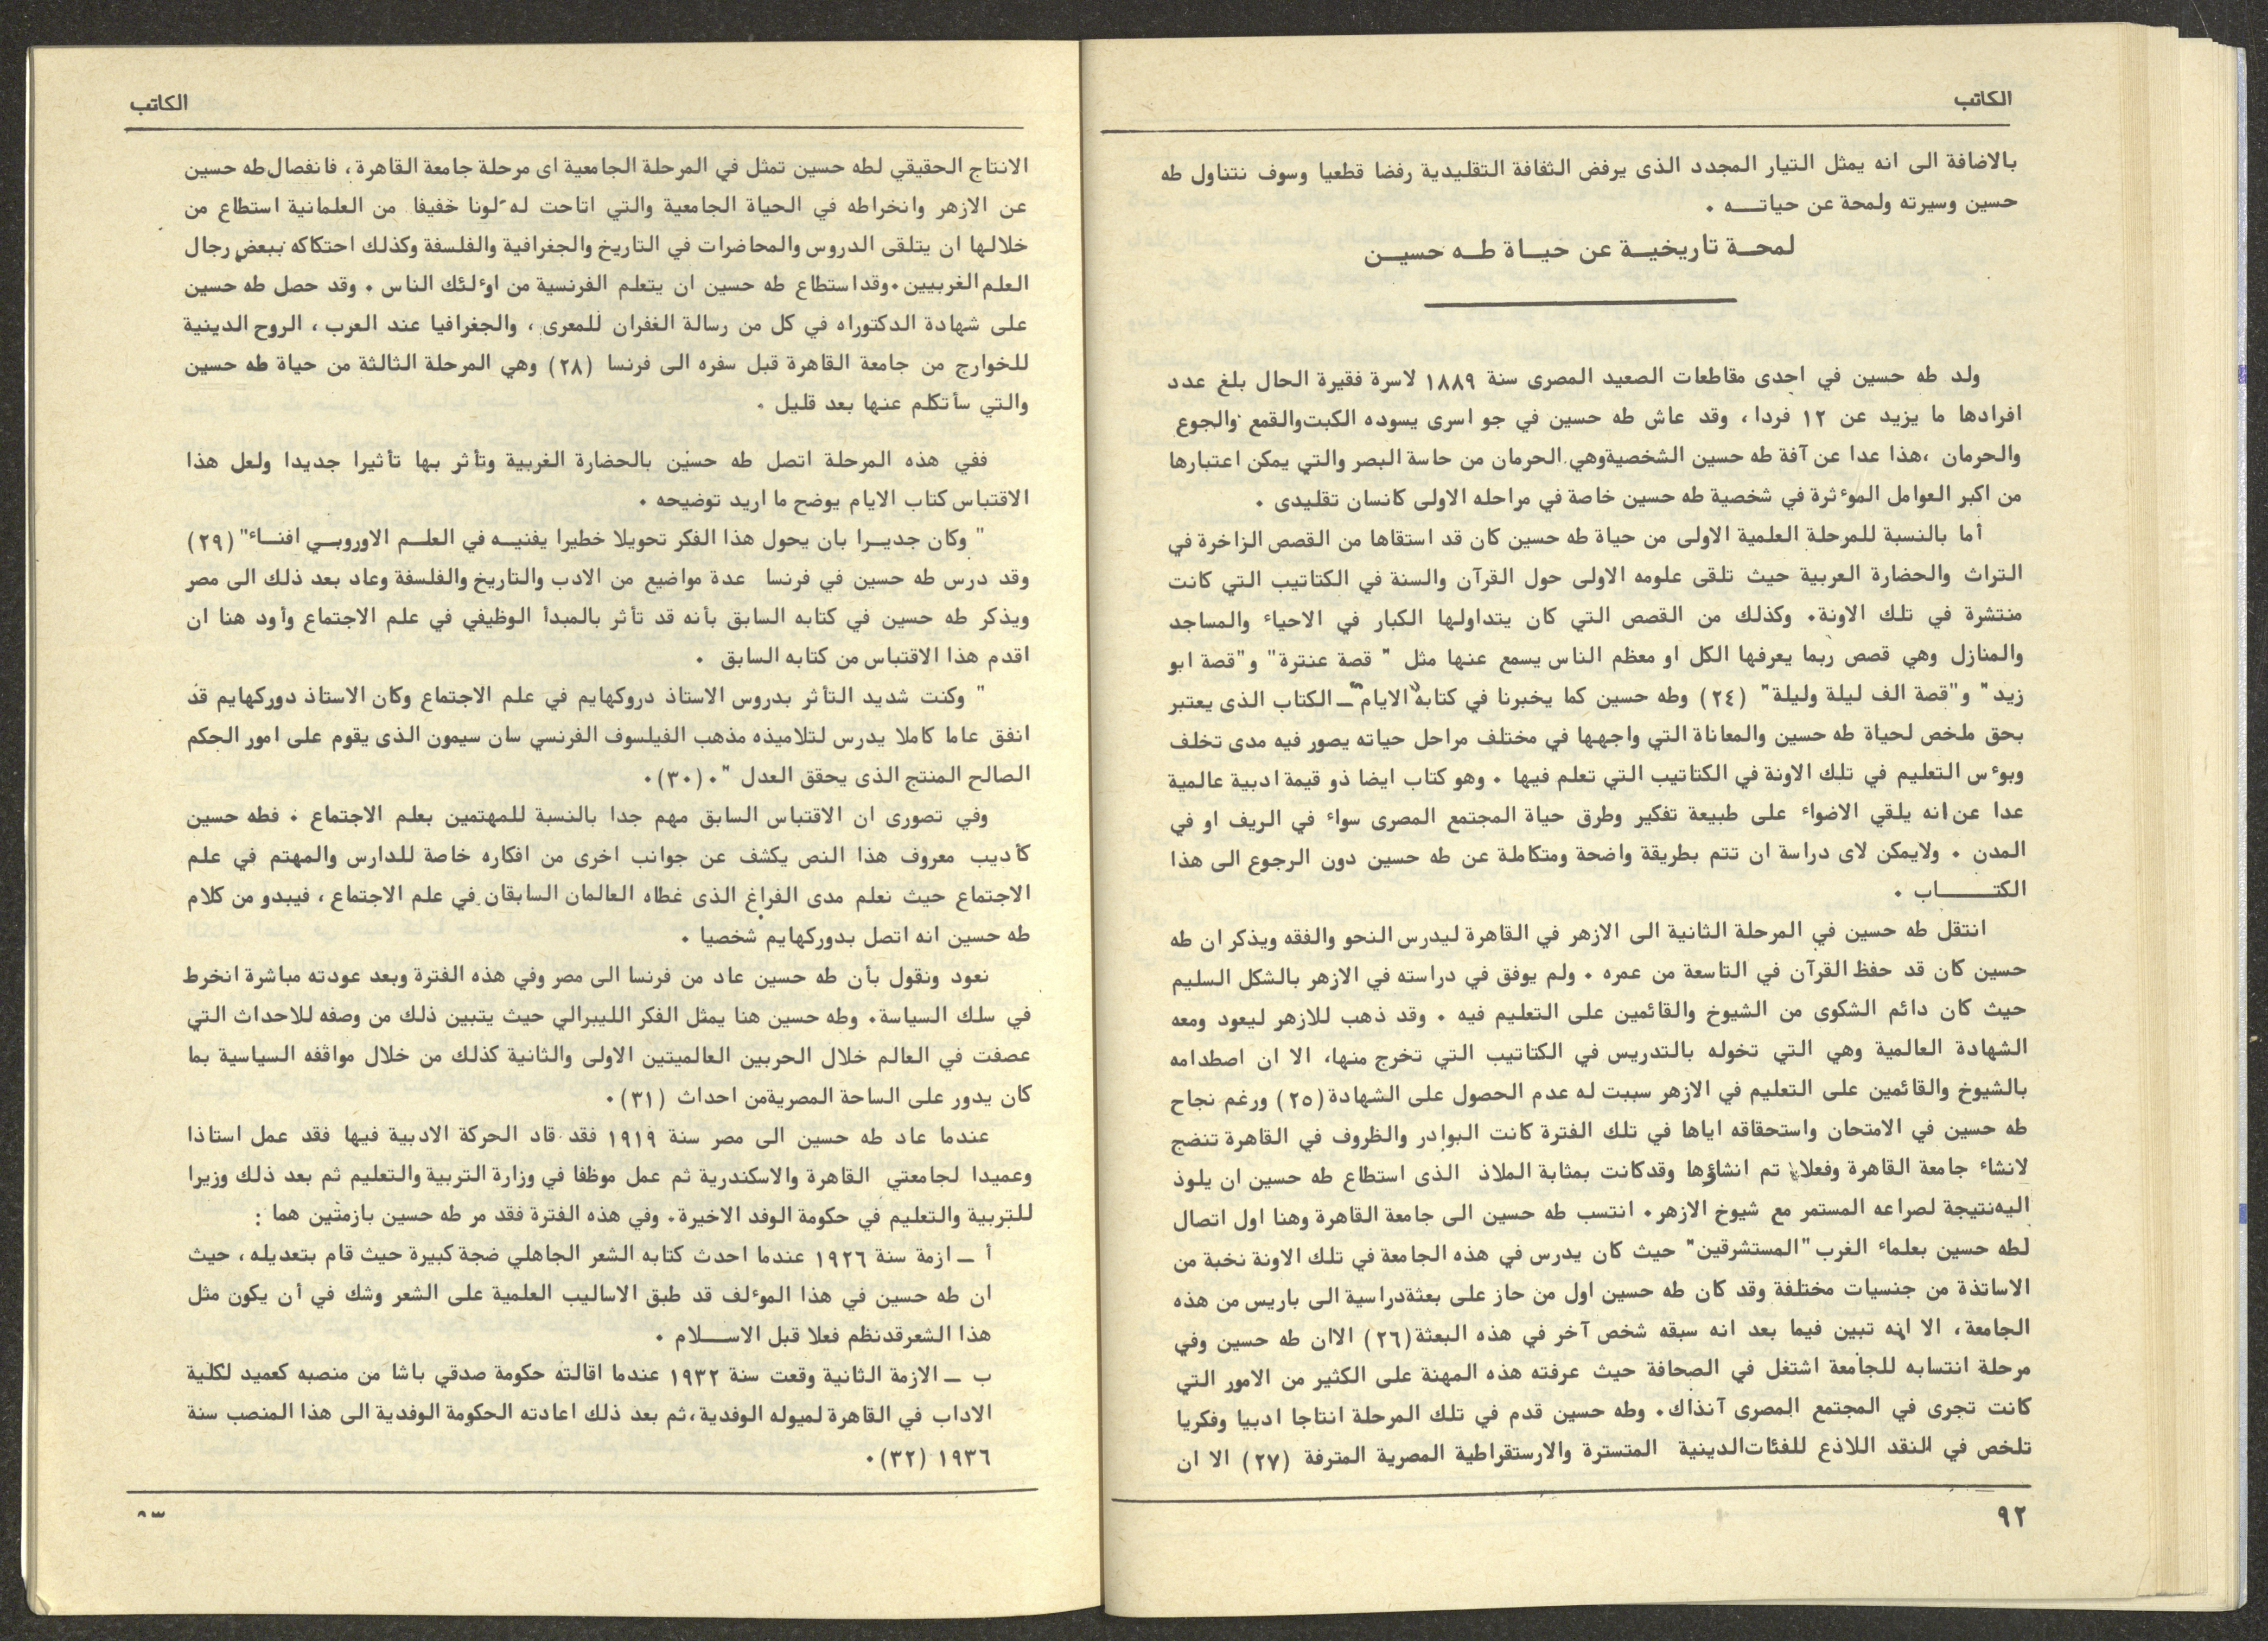 الكاتب
بالاضافة الى انه يمثل التيار المجدد الذى يرفض الثقافة التقليدية رفضا قطعيا وسوف نتناول طه
حسين وسيرته ولمحة عن حياتـــه .
لمحـة تاريخيـة عن حيـاة طـه حسيـن
ولد طه حسين في احدى مقاطعات الصعيد المصرى سنة ١٨٨٩ لاسرة فقيرة الحال بلغ عدد
افرادها ما يزيد عن ١٢ فردا، وقد عاش طه حسين في جو اسرى يسوده الكبت والقمع والجوع
والحرمان ،هذا عدا عن آفة طه حسين الشخصية وهي الحرمان من حاسة البصر والتي يمكن اعتبارها
من اكبر العوامل الموءثرة في شخصية طه حسين خاصة في مراحله الاولى كانسان تقليدى .
أما بالنسبة للمرحلة العلمية الاولى من حياة طه حسين كان قد استقاها من القصص الزاخرة في
التراث والحضارة العربية حيث تلقى علومه الاولى حول القرآن والسنة في الكتاتيب التي كانت
منتشرة في تلك الاونة. وكذلك من القصص التي كان يتداولها الكبار في الاحياء والمساجد
والمنازل وهي قصص ربما يعرفها الكل او معظم الناس يسمع عنها مثل " قصة عنترة" و"قصة ابو
زيد" و"قصة الف ليلة وليلة" (٢٤) وطه حسين كما يخبرنا في كتابه "الايام" ــ الكتاب الذى يعتبر
بحق ملخص لحياة طه حسين والمعاناة التي واجهها في مختلف مراحل حياته يصور فيه مدى تخلف
وبوءس التعليم في تلك الاونة في الكتاتيب التي تعلم فيها . وهو كتاب ايضا ذو قيمة ادبية عالمية
عدا عن انه يلقي الاضواء على طبيعة تفكير وطرق حياة المجتمع المصرى سواء في الريف او في
المدن . ولايمكن لاى دراسة ان تتم بطريقة واضحة ومتكاملة عن طه حسين دون الرجوع الى هذا
الكتـــــاب .
انتقل طه حسين في المرحلة الثانية الى الازهر في القاهرة ليدرس النحو والفقه ويذكر ان طه
حسين كان قد حفظ القرآن في التاسعة من عمره . ولم يوفق في دراسته في الازهر بالشكل السليم
حيث كان دائم الشكوى من الشيوخ والقائمين على التعليم فيه . وقد ذهب للازهر ليعود ومعه
الشهادة العالمية وهي التي تخوله بالتدريس في الكتاتيب التي تخرج منها، الا ان اصطدامه
بالشيوخ والقائمين على التعليم في الازهر سببت له عدم الحصول على الشهادة (٢٥) ورغم نجاح
طه حسين في الامتحان واستحقاقه اياها في تلك الفترة كانت البوادر والظروف في القاهرة تنضج
لانشاء جامعة القاهرة وفعلا تم انشاؤها وقد كانت بمثابة الملاذ الذى استطاع طه حسين ان يلوذ
اليه نتيجة لصراعه المستمر مع شيوخ الازهر. انتسب طه حسين الى جامعة القاهرة وهنا اول اتصال
لطه حسين بعلماء الغرب "المستشرقين" حيث كان يدرس في هذه الجامعة في تلك الاونة نخبة من
الاساتذة من جنسيات مختلفة وقد كان طه حسين اول من حاز على بعثة دراسية الى باريس من هذه
الجامعة، الا انه تبين فيما بعد انه سبقه شخص آخر في هذه البعثة (٢٦) الاان طه حسين وفي
مرحلة انتسابه للجامعة اشتغل في الصحافة حيث عرفته هذه المهنة على الكثير من الامور التي
كانت تجرى في المجتمع المصرى آنذاك. وطه حسين قدم في تلك المرحلة انتاجا ادبيا وفكريا
تلخص في النقد اللاذع للفئات الدينية المتسترة والارستقراطية المصرية المترفة (٢٧) الا ان
٩٢
الكاتب
الانتاج الحقيقي لطه حسين تمثل في المرحلة الجامعية اى مرحلة جامعة القاهرة، فانفصال طه حسين
عن الازهر وانخراطه في الحياة الجامعية والتي اتاحت له لونا خفيفا من العلمانية استطاع من
خلالها ان يتلقى الدروس والمحاضرات في التاريخ والجغرافية والفلسفة وكذلك احتكاكه ببعض رجال
العلم الغربيين. وقد استطاع طه حسين ان يتعلم الفرنسية من اوءلئك الناس . وقد حصل طه حسين
على شهادة الدكتوراه في كل من رسالة الغفران للمعرى ، والجغرافيا عند العرب ، الروح الدينية
للخوارج من جامعة القاهرة قبل سفره الى فرنسا (٢٨) وهي المرحلة الثالثة من حياة طه حسين
والتي سأتكلم عنها بعد قليل .
ففي هذه المرحلة اتصل طه حسين بالحضارة الغربية وتأثر بها تأثيرا جديدا ولعل هذا
الاقتباس كتاب الايام يوضح ما اريد توضيحه .
" وكان جديـرا بان يحول هذا الفكر تحويلا خطيرا يفنيـه في العلـم الاوروبـي افنـاء" (٢٩)
وقد درس طه حسين في فرنسا عدة مواضيع من الادب والتاريخ والفلسفة وعاد بعد ذلك الى مصر
ويذكر طه حسين في كتابه السابق بأنه قد تأثر بالمبدأ الوظيفي في علم الاجتماع وأود هنا ان
اقدم هذا الاقتباس من كتابه السابق .
" وكنت شديد التأثر بدروس الاستاذ دروكهايم في علم الاجتماع وكان الاستاذ دوركهايم قد
انفق عاما كاملا يدرس لتلاميذه مذهب الفيلسوف الفرنسي سان سيمون الذى يقوم على امور الحكم
الصالح المنتج الذى يحقق العدل ". (٣٠).
وفي تصورى ان الاقتباس السابق مهم جدا بالنسبة للمهتمين بعلم الاجتماع . فطه حسين
كأديب معروف هذا النص يكشف عن جوانب اخرى من افكاره خاصة للدارس والمهتم في علم
الاجتماع حيث نعلم مدى الفراغ الذى غطاه العالمان السابقان في علم الاجتماع ، فيبدو من كلام
طه حسين انه اتصل بدوركهايم شخصيا .
نعود ونقول بأن طه حسين عاد من فرنسا الى مصر وفي هذه الفترة وبعد عودته مباشرة انخرط
في سلك السياسة. وطه حسين هنا يمثل الفكر الليبرالي حيث يتبين ذلك من وصفه للاحداث التي
عصفت في العالم خلال الحربين العالميتين الاولى والثانية كذلك من خلال مواقفه السياسية بما
كان يدور على الساحة المصرية من احداث (٣١).
عندما عاد طه حسين الى مصر سنة ١٩١٩ فقد قاد الحركة الادبية فيها فقد عمل استاذا
وعميدا لجامعتي القاهرة والاسكندرية ثم عمل موظفا في وزارة التربية والتعليم ثم بعد ذلك وزيرا
للتربية والتعليم في حكومة الوفد الاخيرة. وفي هذه الفترة فقد مر طه حسين بازمتين هما :
أ ــ ازمة سنة ١٩٢٦ عندما احدث كتابه الشعر الجاهلي ضجة كبيرة حيث قام بتعديله ، حيث
ان طه حسين في هذا الموءلف قد طبق الاساليب العلمية على الشعر وشك في أن يكون مثل
هذا الشعر قد نظم فعلا قبل الاســـلام .
ب ــ الازمة الثانية وقعت سنة ١٩٣٢ عندما اقالته حكومة صدقي باشا من منصبه كعميد لكلية
الاداب في القاهرة لميوله الوفدية،ثم بعد ذلك اعادته الحكومة الوفدية الى هذا المنصب سنة
١٩٣٦ (٣٢).